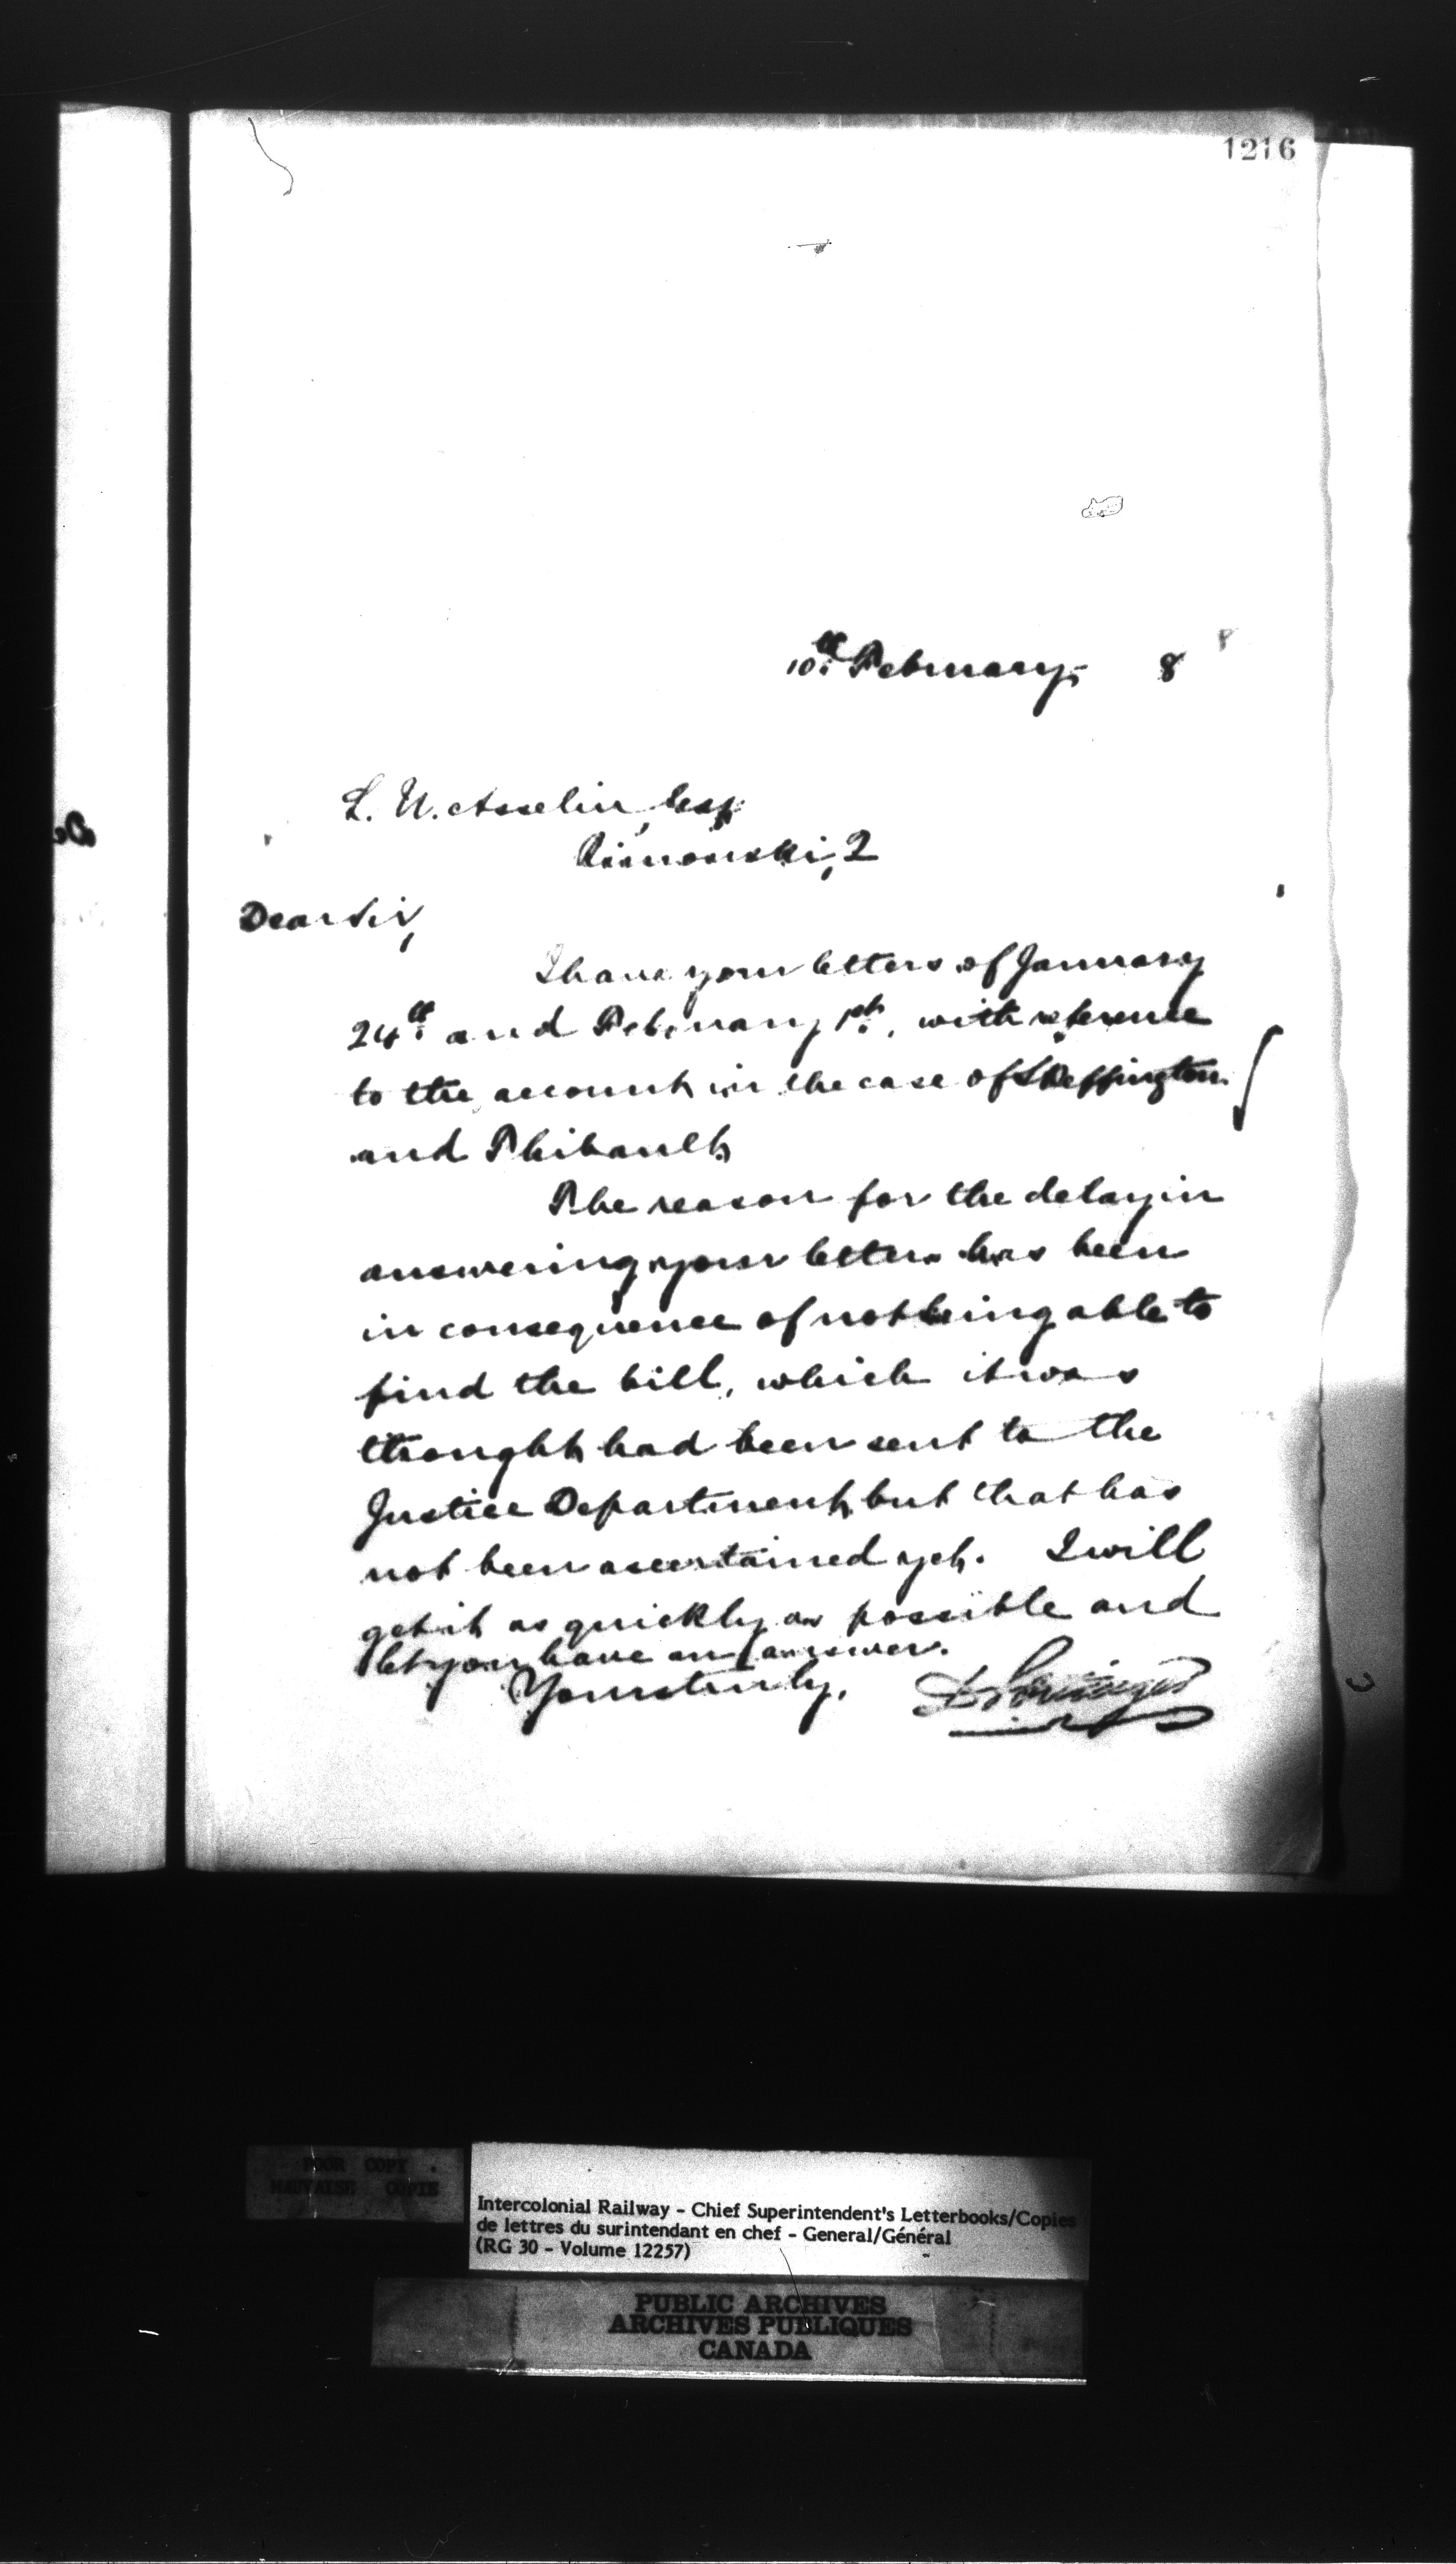 1216
10th February, 8
L. N. Asselin, Esq.
Rimouski, 2
Dear Sir,
I have your letters of January
24th and February 1st, with reference
to the account in the case of Skeffington
and Thibault.
The reason for the delay in
answering your letters has been
in consequence of not being able to
find the bill, which it was
thought had been sent to the
Justice Department, but that has
not been ascertained yet. I will
get it as quickly as possible and
let you have an answer.
Yours truly,
D. Pottinger
POOR COPY
MAUVAISE COPIE
Intercolonial Railway - Chief Superintendent's Letterbooks/Copies
de lettres du surintendant en chef - General/Général
(RG 30 - Volume 12257)
PUBLIC ARCHIVES
ARCHIVES PUBLIQUES
CANADA